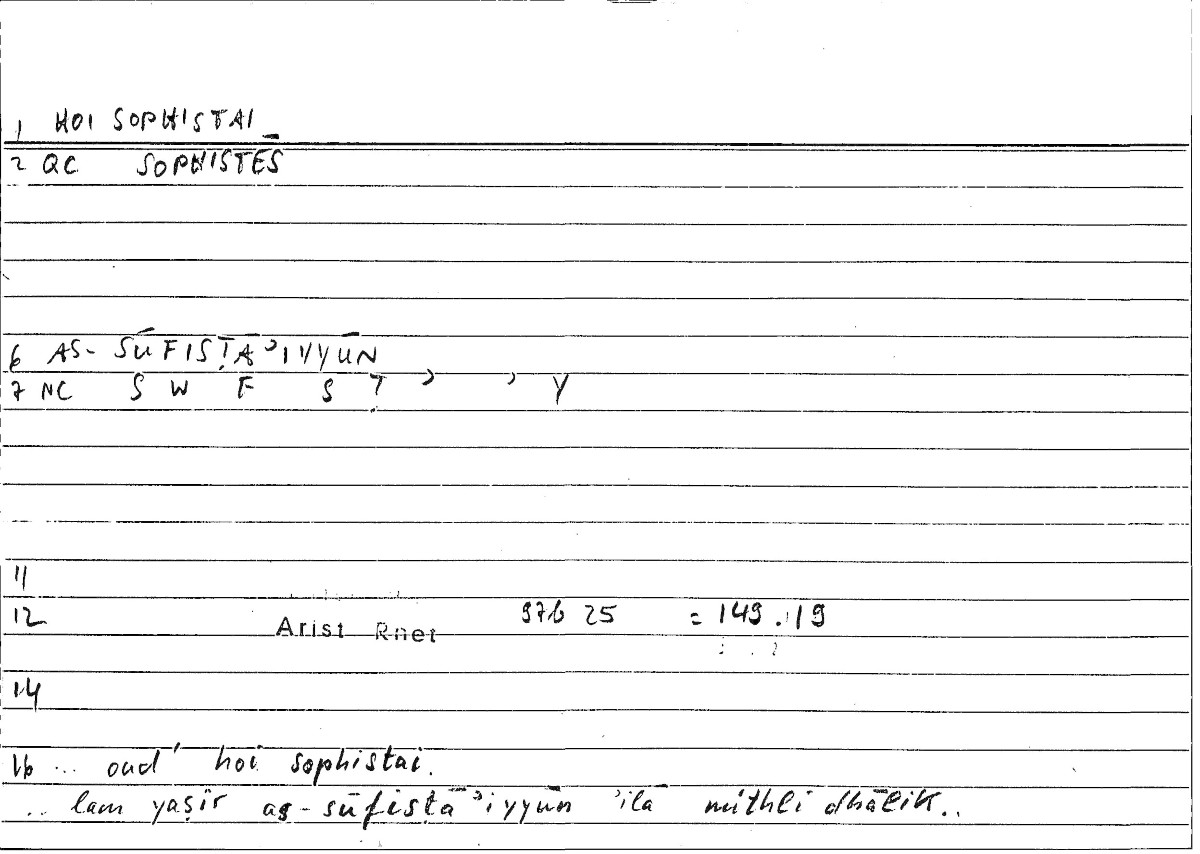 1 HOI SOPHISTAI
2 QC SOPHISTĒS
6 AS- SŪFISṬĀʾIYYŪN
7 NC S W F S Ṭ ʾ ʾ Y
11
12 Arist Rhet 97b 25 = 149.19
14
16 ... oud' hoi sophistai.
.. lam yaṣir as-sūfisṭāʾiyyūn ʾilā mithli dhālik..